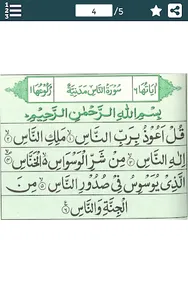 4 /5
اٰیَاتُهَا ٦ سُوْرَةُ النَّاسِ مَدَنِیَّةٌ رُكُوْعُهَا ١
بِسْمِ اللّٰهِ الرَّحْمٰنِ الرَّحِیْمِ
قُلْ اَعُوْذُ بِرَبِّ النَّاسِ ١ مَلِكِ النَّاسِ ٢
اِلٰهِ النَّاسِ ٣ مِنْ شَرِّ الْوَسْوَاسِ الْخَنَّاسِ ٤
الَّذِیْ یُوَسْوِسُ فِیْ صُدُوْرِ النَّاسِ ٥ مِنَ
الْجِنَّةِ وَالنَّاسِ ٦